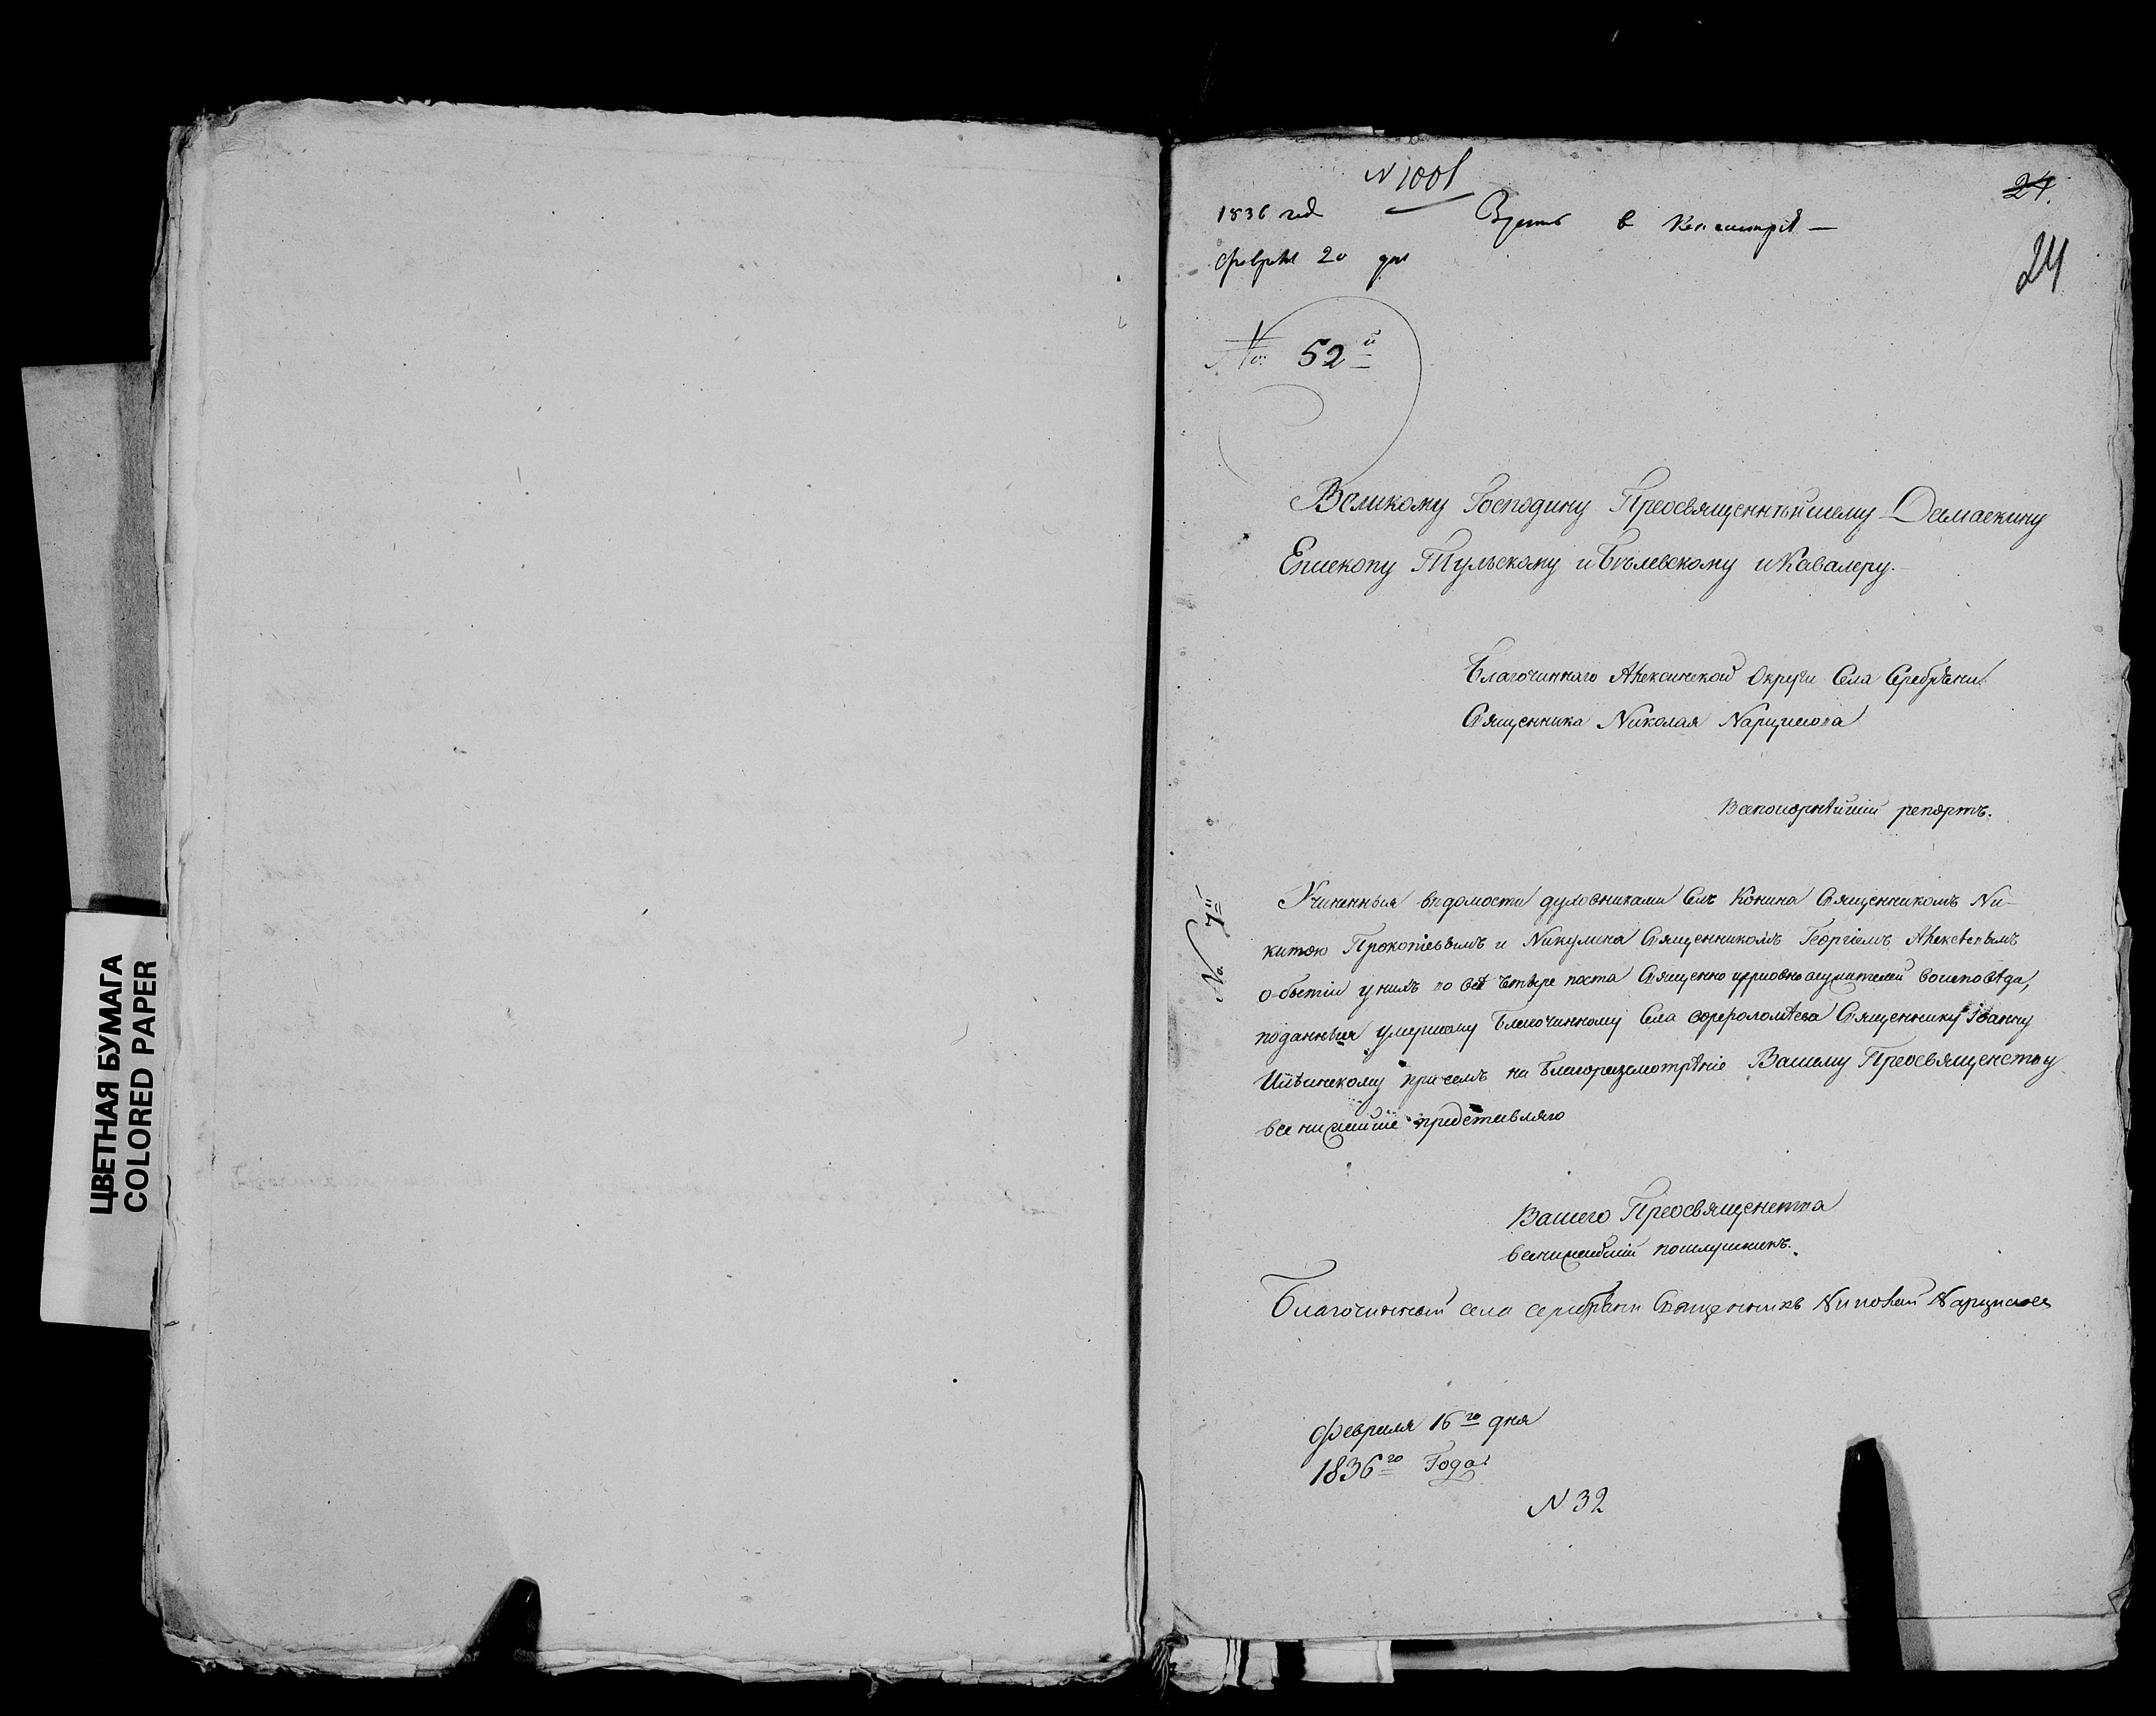 ЦВЕТНАЯ БУМАГА
COLORED PAPER
N 1001
24.
24
1836 год
Взять в Консисторiю —
февраля 20 дня
No: 52й
Великому Господину Преосвященнѣйшему Дамаскину
Епископу Тульскому и Бѣлевскому и Кавалеру.
Благочиннаго Алексинской Округи Села Серебрѣни
Священника Николая Нарциссова
Всепокорнѣйшiй репортъ.
No. 7й
Учиненныя ведомости духовниками Селъ Конина Священникомъ Ни-
китою Прокопьевымъ и Никулина Священникомъ Георгiемъ Алексѣевымъ
о бытiи у нихъ во всѣ четыре поста Священно церковно служителей во исповѣди,
поданныя умершему Благочинному Села Священнику Iоанну
Ильинскому при семъ на Благоразсмотрѣнiе Вашему Преосвященству
все нижайше представляю
Вашего Преосвященства
всенижайшiй послушникъ.
Благочинный села серебрѣни Священникъ Николай Нарциссовъ
Февраля 16го дня
1836го Года
N 32